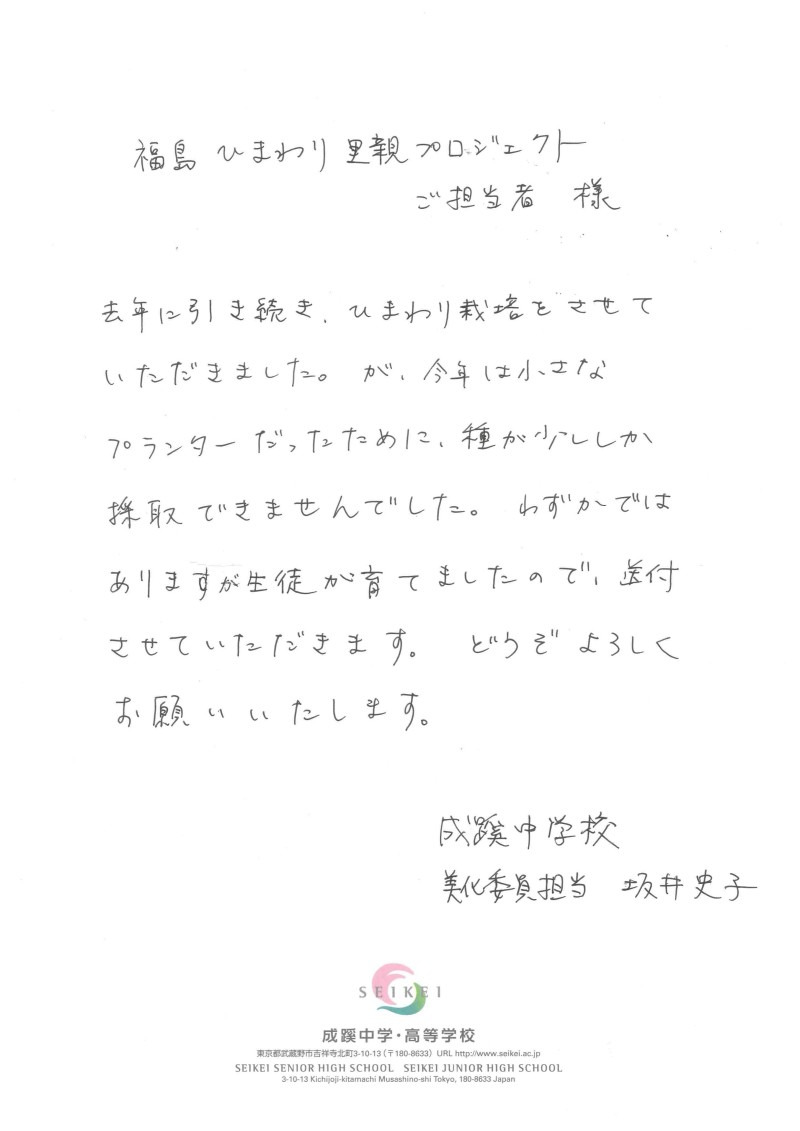 福島 ひまわり 里親プロジェクト
ご担当者 様
去年に引き続き、ひまわり栽培をさせて
いただきました。が、今年は小さな
プランターだったために、種が少ししか
採取できませんでした。わずかでは
ありますが生徒が育てましたので、送付
させていただきます。どうぞよろしく
お願いいたします。
成蹊中学校
美化委員担当 坂井史子
SEIKEI
成蹊中学・高等学校
東京都武蔵野市吉祥寺北町3-10-13(〒180-8633) URL http://www.seikei.ac.jp
SEIKEI SENIOR HIGH SCHOOL SEIKEI JUNIOR HIGH SCHOOL
3-10-13 Kichijoji-kitamachi Musashino-shi Tokyo, 180-8633 Japan